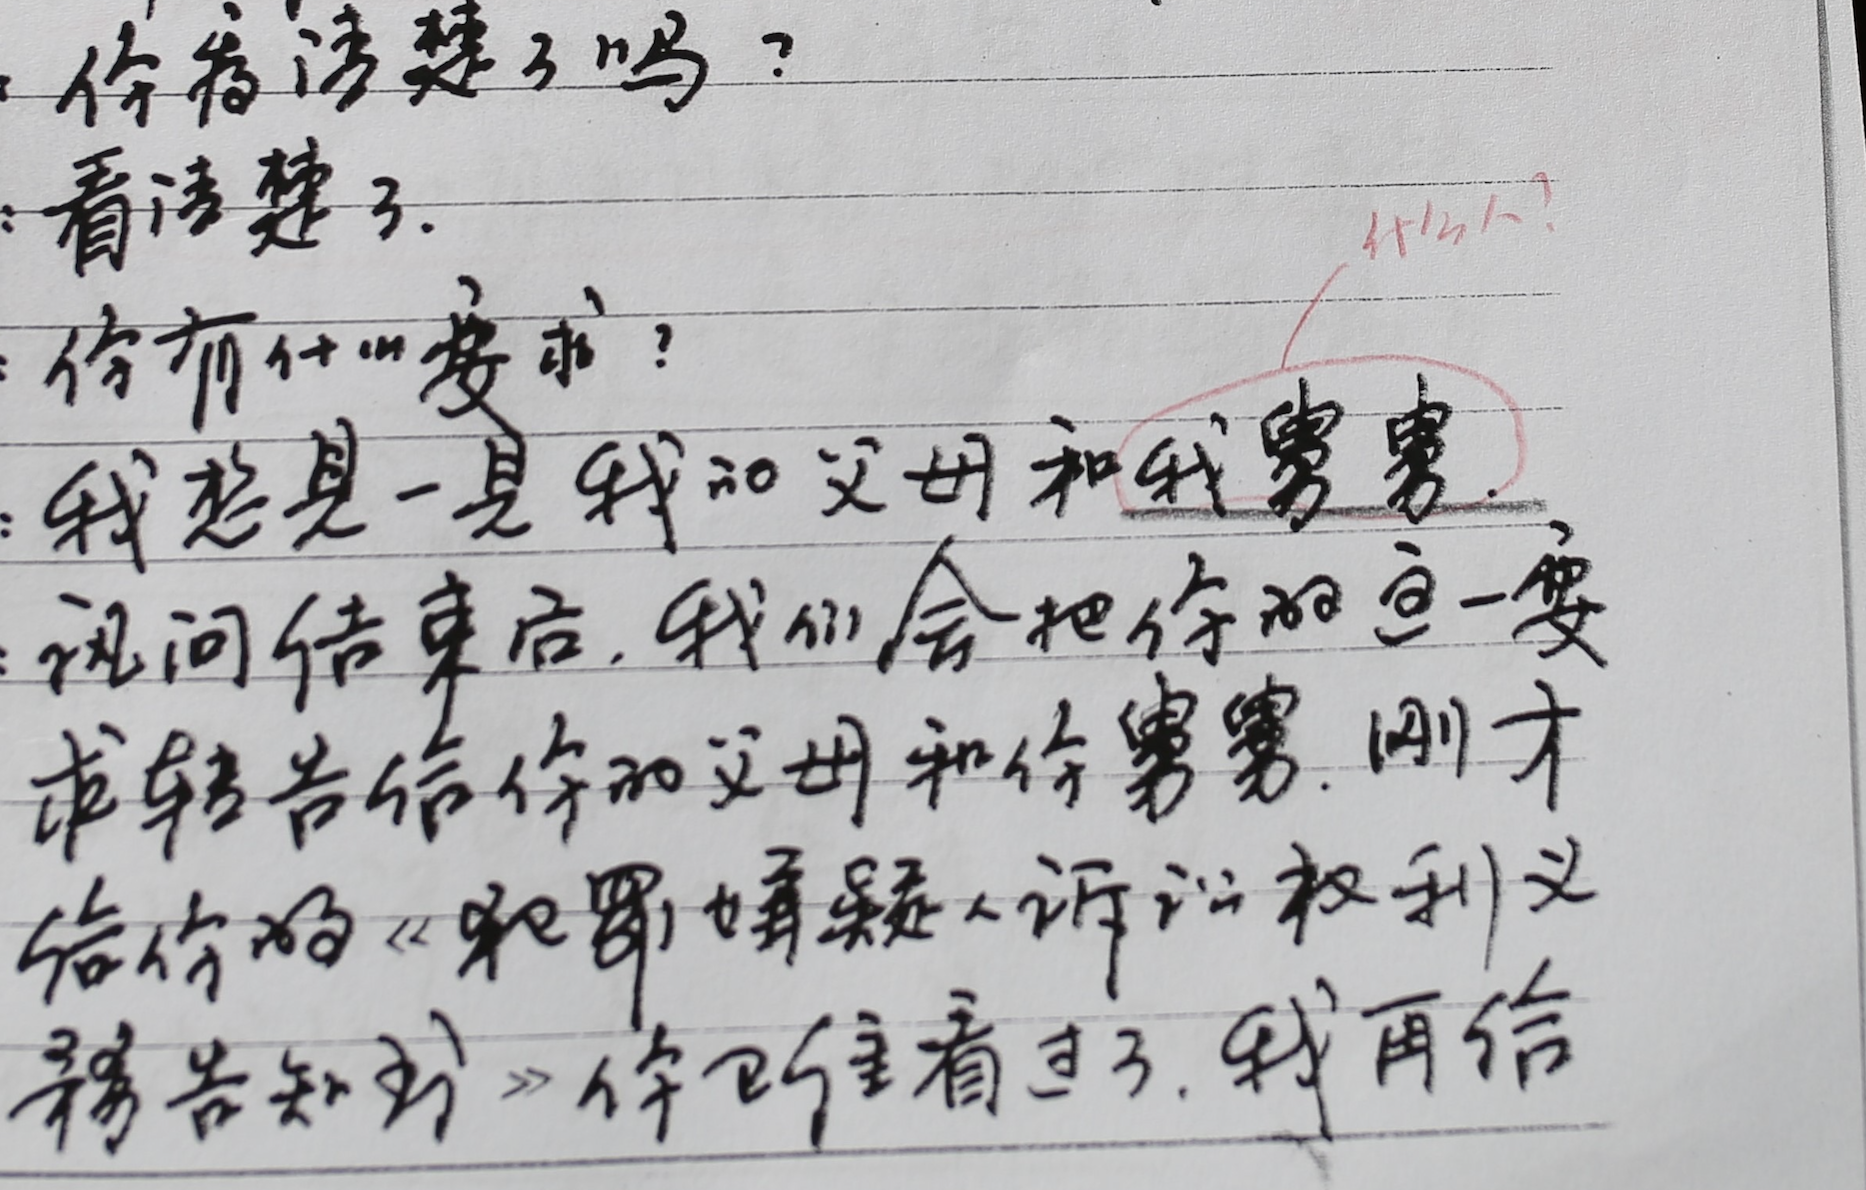 : 你看清楚了吗?
: 看清楚了.
什么人?
: 你有什么要求?
: 我想见一见我的父母和我舅舅.
: 讯问结束后.我们会把你的这一要
求转告给你的父母和你舅舅.刚才
给你的《犯罪嫌疑人诉讼权利义
务告知书》你已经看过了.我再给